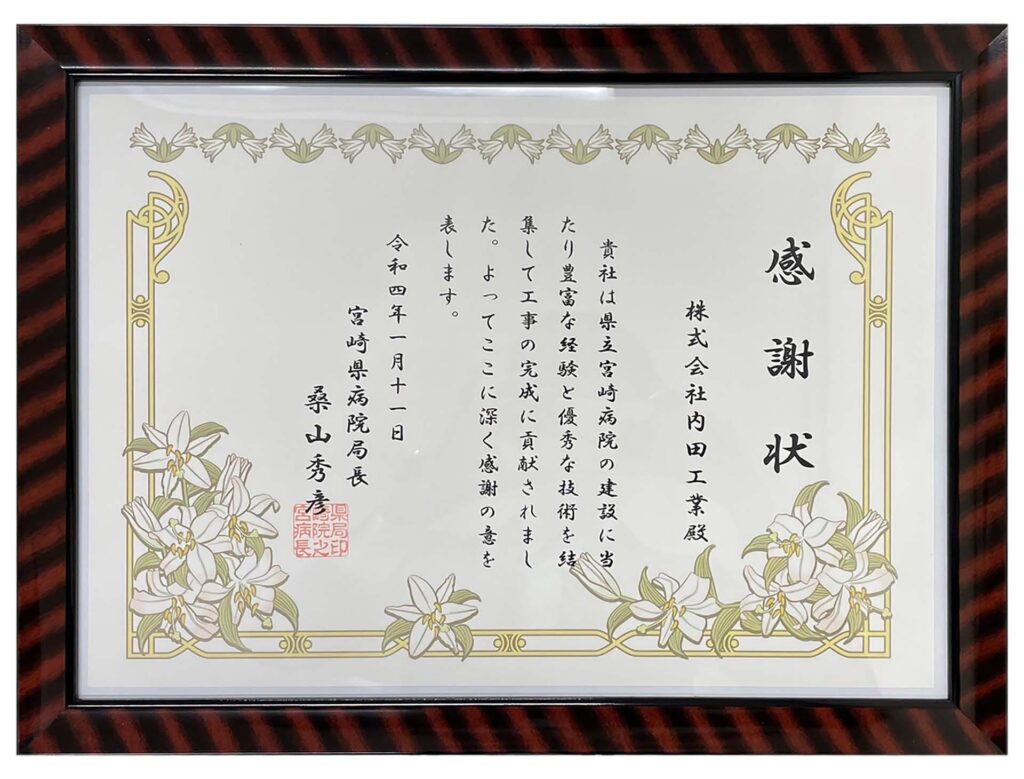 感謝状
株式会社内田工業殿
貴社は県立宮崎病院の建設に当
たり豊富な経験と優秀な技術を結
集して工事の完成に貢献されまし
た。よってここに深く感謝の意を
表します。
令和四年一月十一日
宮崎県病院局長
桑山秀彦
宮崎県
病院局
長之印